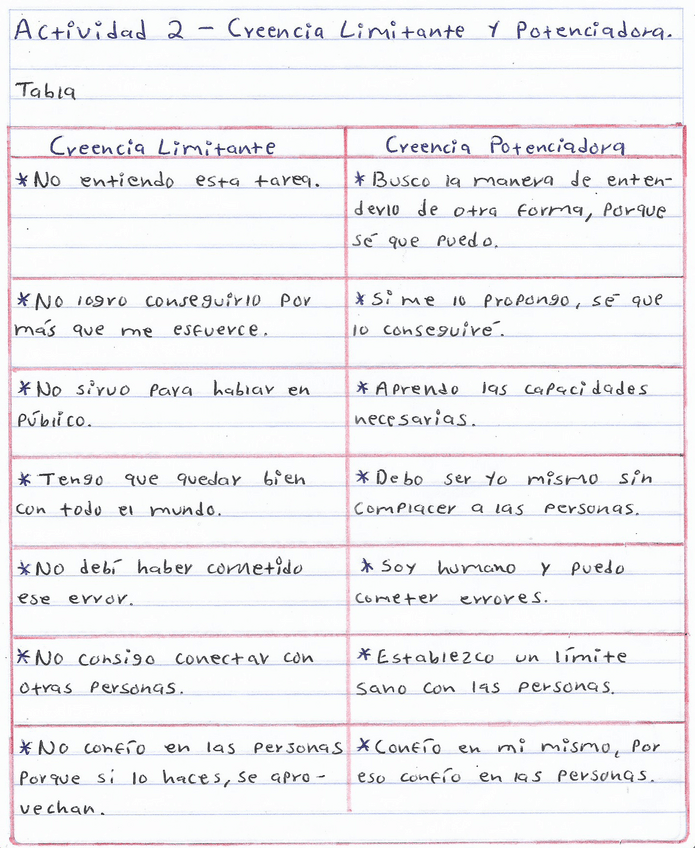 Actividad 2 - Creencia Limitante y Potenciadora.
Tabla
Creencia Limitante
Creencia Potenciadora
*No entiendo esta tarea.
*Busco la manera de enten-
derlo de otra forma, porque
sé que puedo.
*No logro conseguirlo por
más que me esfuerce.
*Si me lo propongo, sé que
lo conseguiré.
*No sirvo para hablar en
público.
*Aprendo las capacidades
necesarias.
*Tengo que quedar bien
con todo el mundo.
*Debo ser yo mismo sin
complacer a las personas.
*No debí haber cometido
ese error.
*Soy humano y puedo
cometer errores.
*No consigo conectar con
otras personas.
*Establezco un límite
sano con las personas.
*No confío en las personas
porque si lo haces, se apro-
vechan.
*Confío en mi mismo, por
eso confío en las personas.